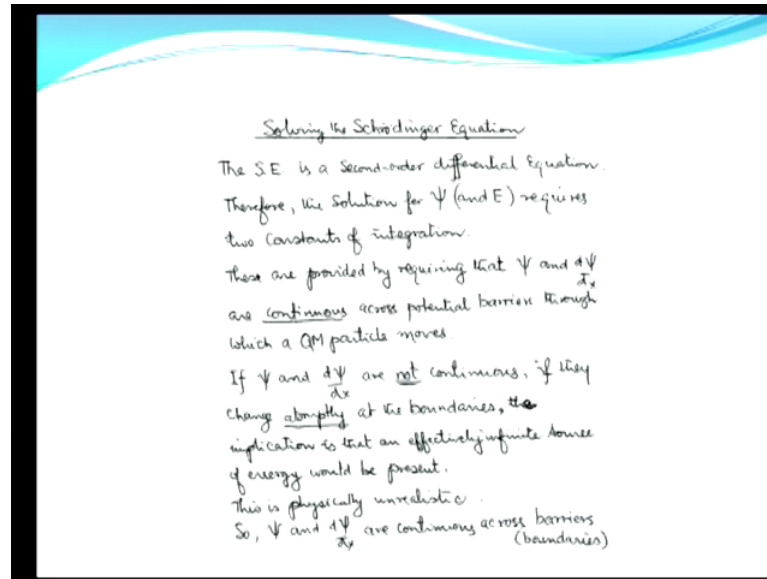 Solving the Schrödinger Equation
The S.E. is a second-order differential Equation.
Therefore, the Solution for Ψ (and E) requires
two constants of integration.
These are provided by requiring that Ψ and dΨ/dx
are continuous across potential barriers through
which a QM particle moves.
If Ψ and dΨ/dx are not continuous, if they
change abruptly at the boundaries, the
implication is that an effectively infinite source
of energy would be present.
This is physically unrealistic.
So, Ψ and dΨ/dx are continuous across barriers
(boundaries)